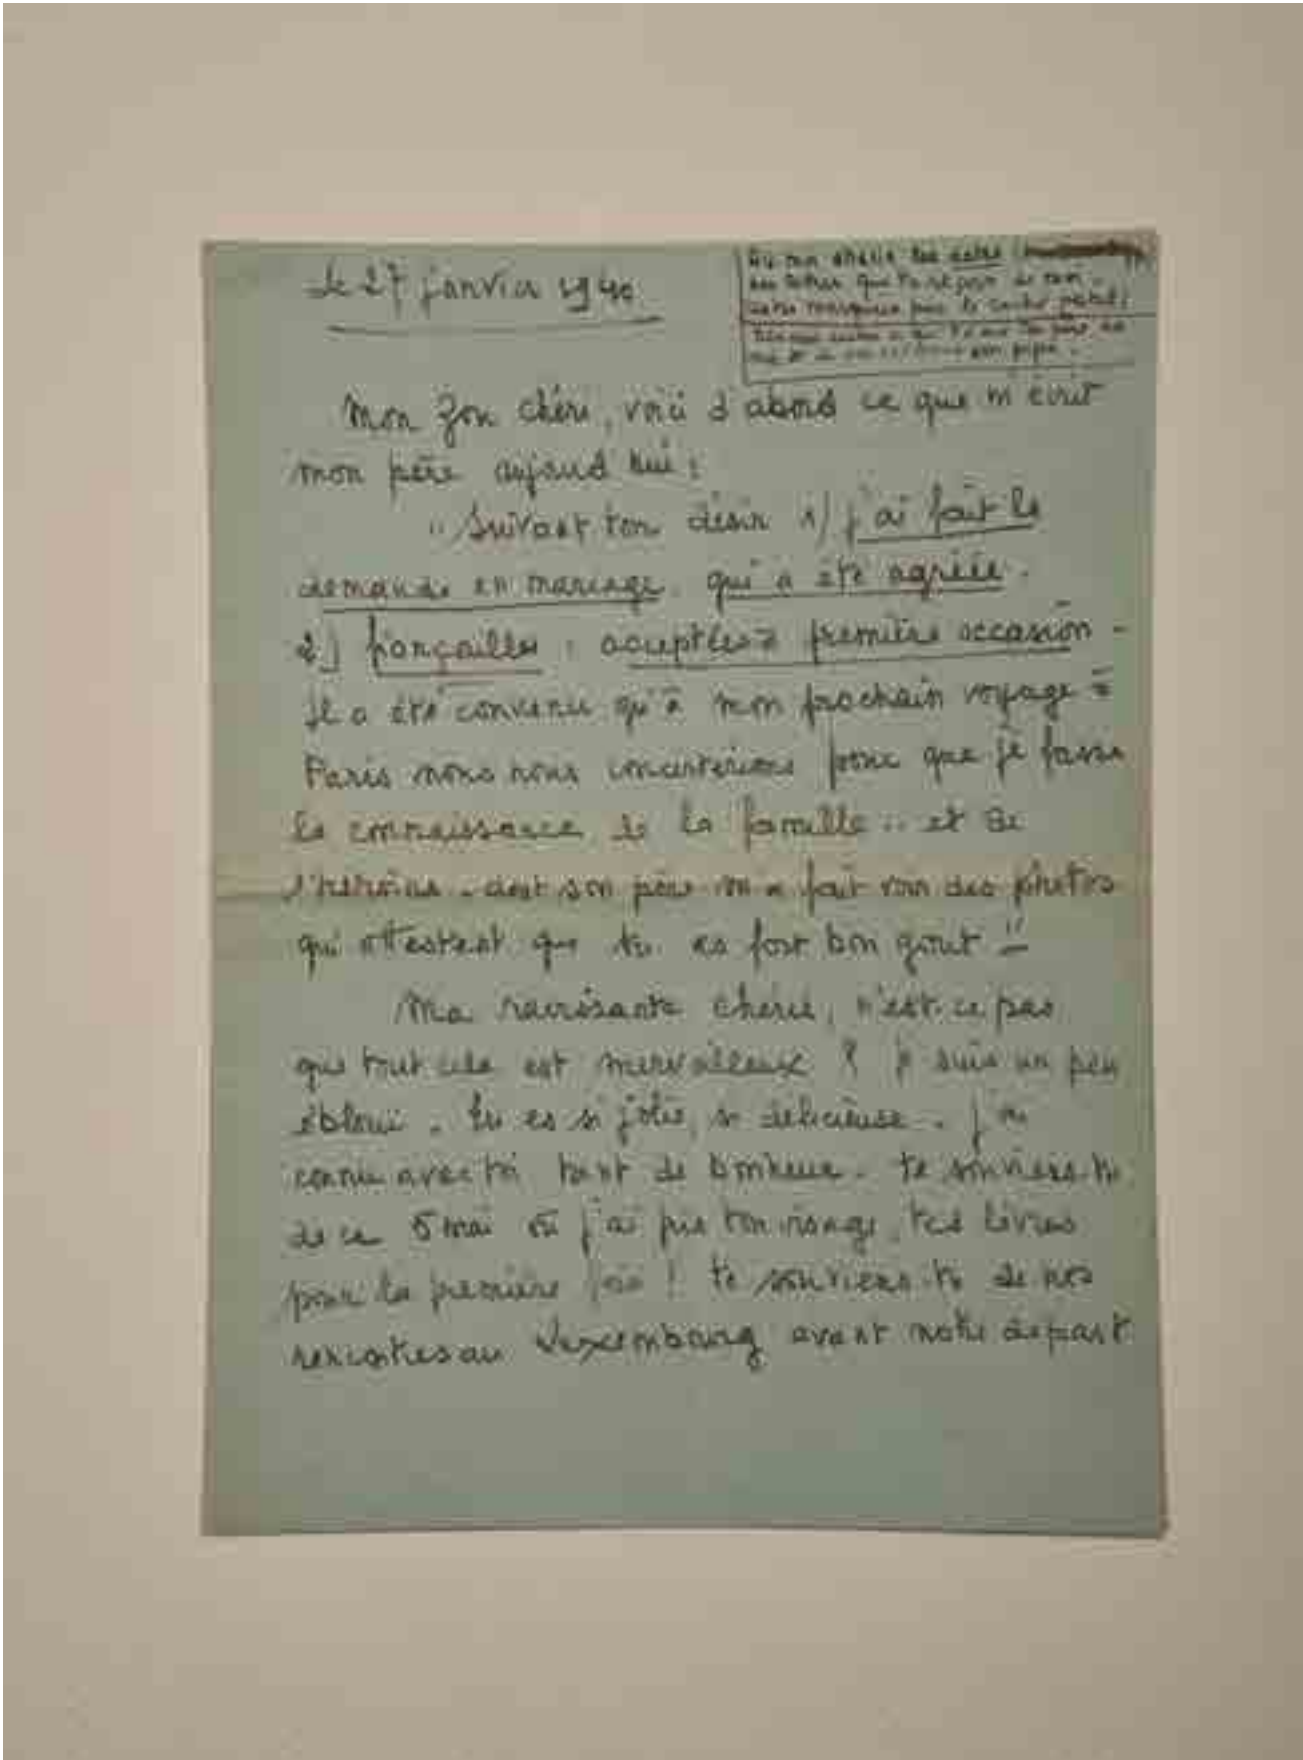 le 27 janvier 1940
des lettres que
Mon Zon chéri, voici d'abord ce que m'écrit
mon père aujourd'hui :
"Suivant ton désir 1) j'ai fait la
demande en mariage qui a été agréée.
2) fiançailles : acceptées à première occasion -
Il a été convenu qu'à mon prochain voyage à
Paris nous nous concerterions pour que je fasse
la connaissance de la famille .. et de
l'héroïne - dont son père m'a fait voir des photos
qui attestent que tu as fort bon goût !"
Ma ravissante chérie, n'est-ce pas
que tout cela est merveilleux ? je suis un peu
ébloui. tu es si jolie, si délicieuse. j'ai
connu avec toi tant de bonheur. te souviens-tu
de ce 5 mai où j'ai pris ton visage, tes lèvres
pour la première fois ! te souviens-tu de nos
rencontres au Luxembourg avant notre départ